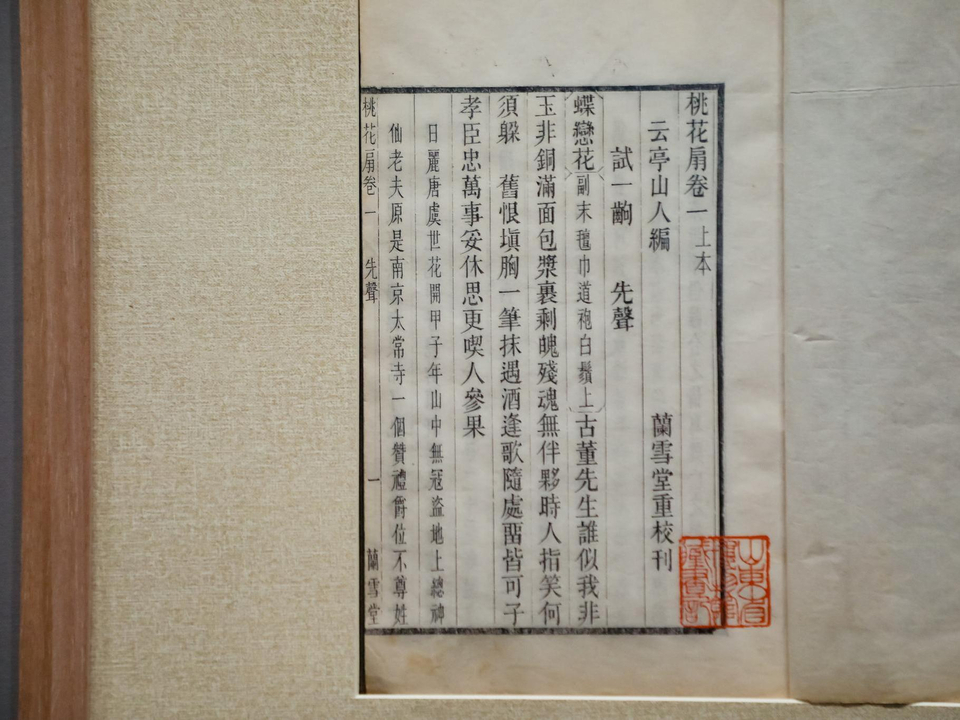 桃花扇卷一上本
云亭山人編 蘭雪堂重校刊
試一齣 先聲
蝶戀花副末氊巾道袍白鬚上古董先生誰似我非
玉非銅滿面包漿裹剩魄殘魂無伴夥時人指笑何
須躲 舊恨塡胸一筆抹遇酒逢歌隨處畱皆可子
孝臣忠萬事妥休思更喫人參果
日麗唐虞世花開甲子年山中無寇盜地上總神
仙老夫原是南京太常寺一個贊禮爵位不尊姓
桃花扇卷一 先聲 一 蘭雪堂
山東省
博物館
藏書記